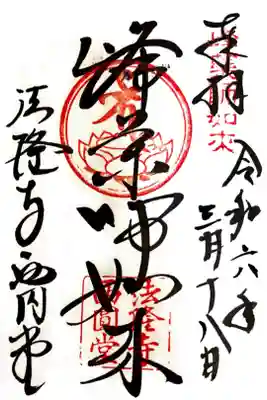 奉拝
令和六年
三月十八日
峰薬師如来
法隆寺西円堂
法隆寺
西圓堂